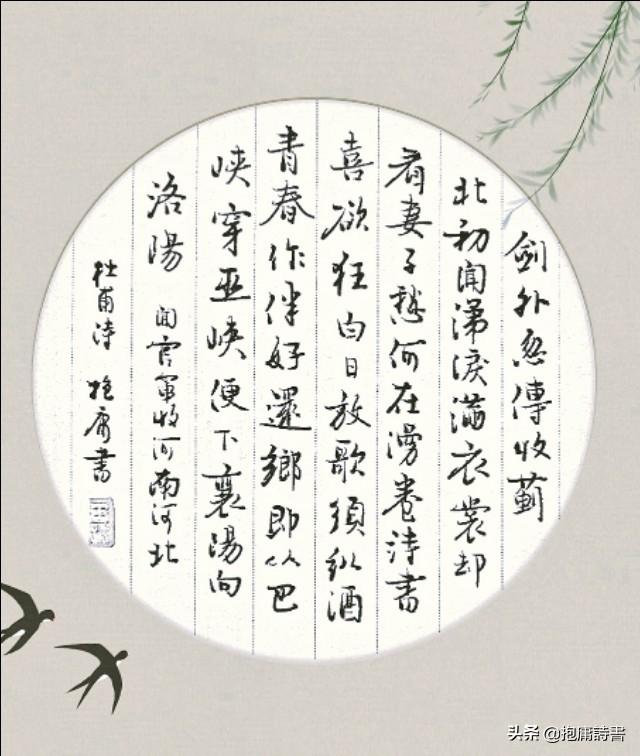 劍外忽傳收薊
北初聞涕淚滿衣裳却
看妻子愁何在漫卷詩書
喜欲狂白日放歌須縱酒
青春作伴好還鄉即從巴
峽穿巫峽便下襄陽向
洛陽 聞官軍收河南河北
杜甫詩 抱庸書
头条 @抱庸詩書